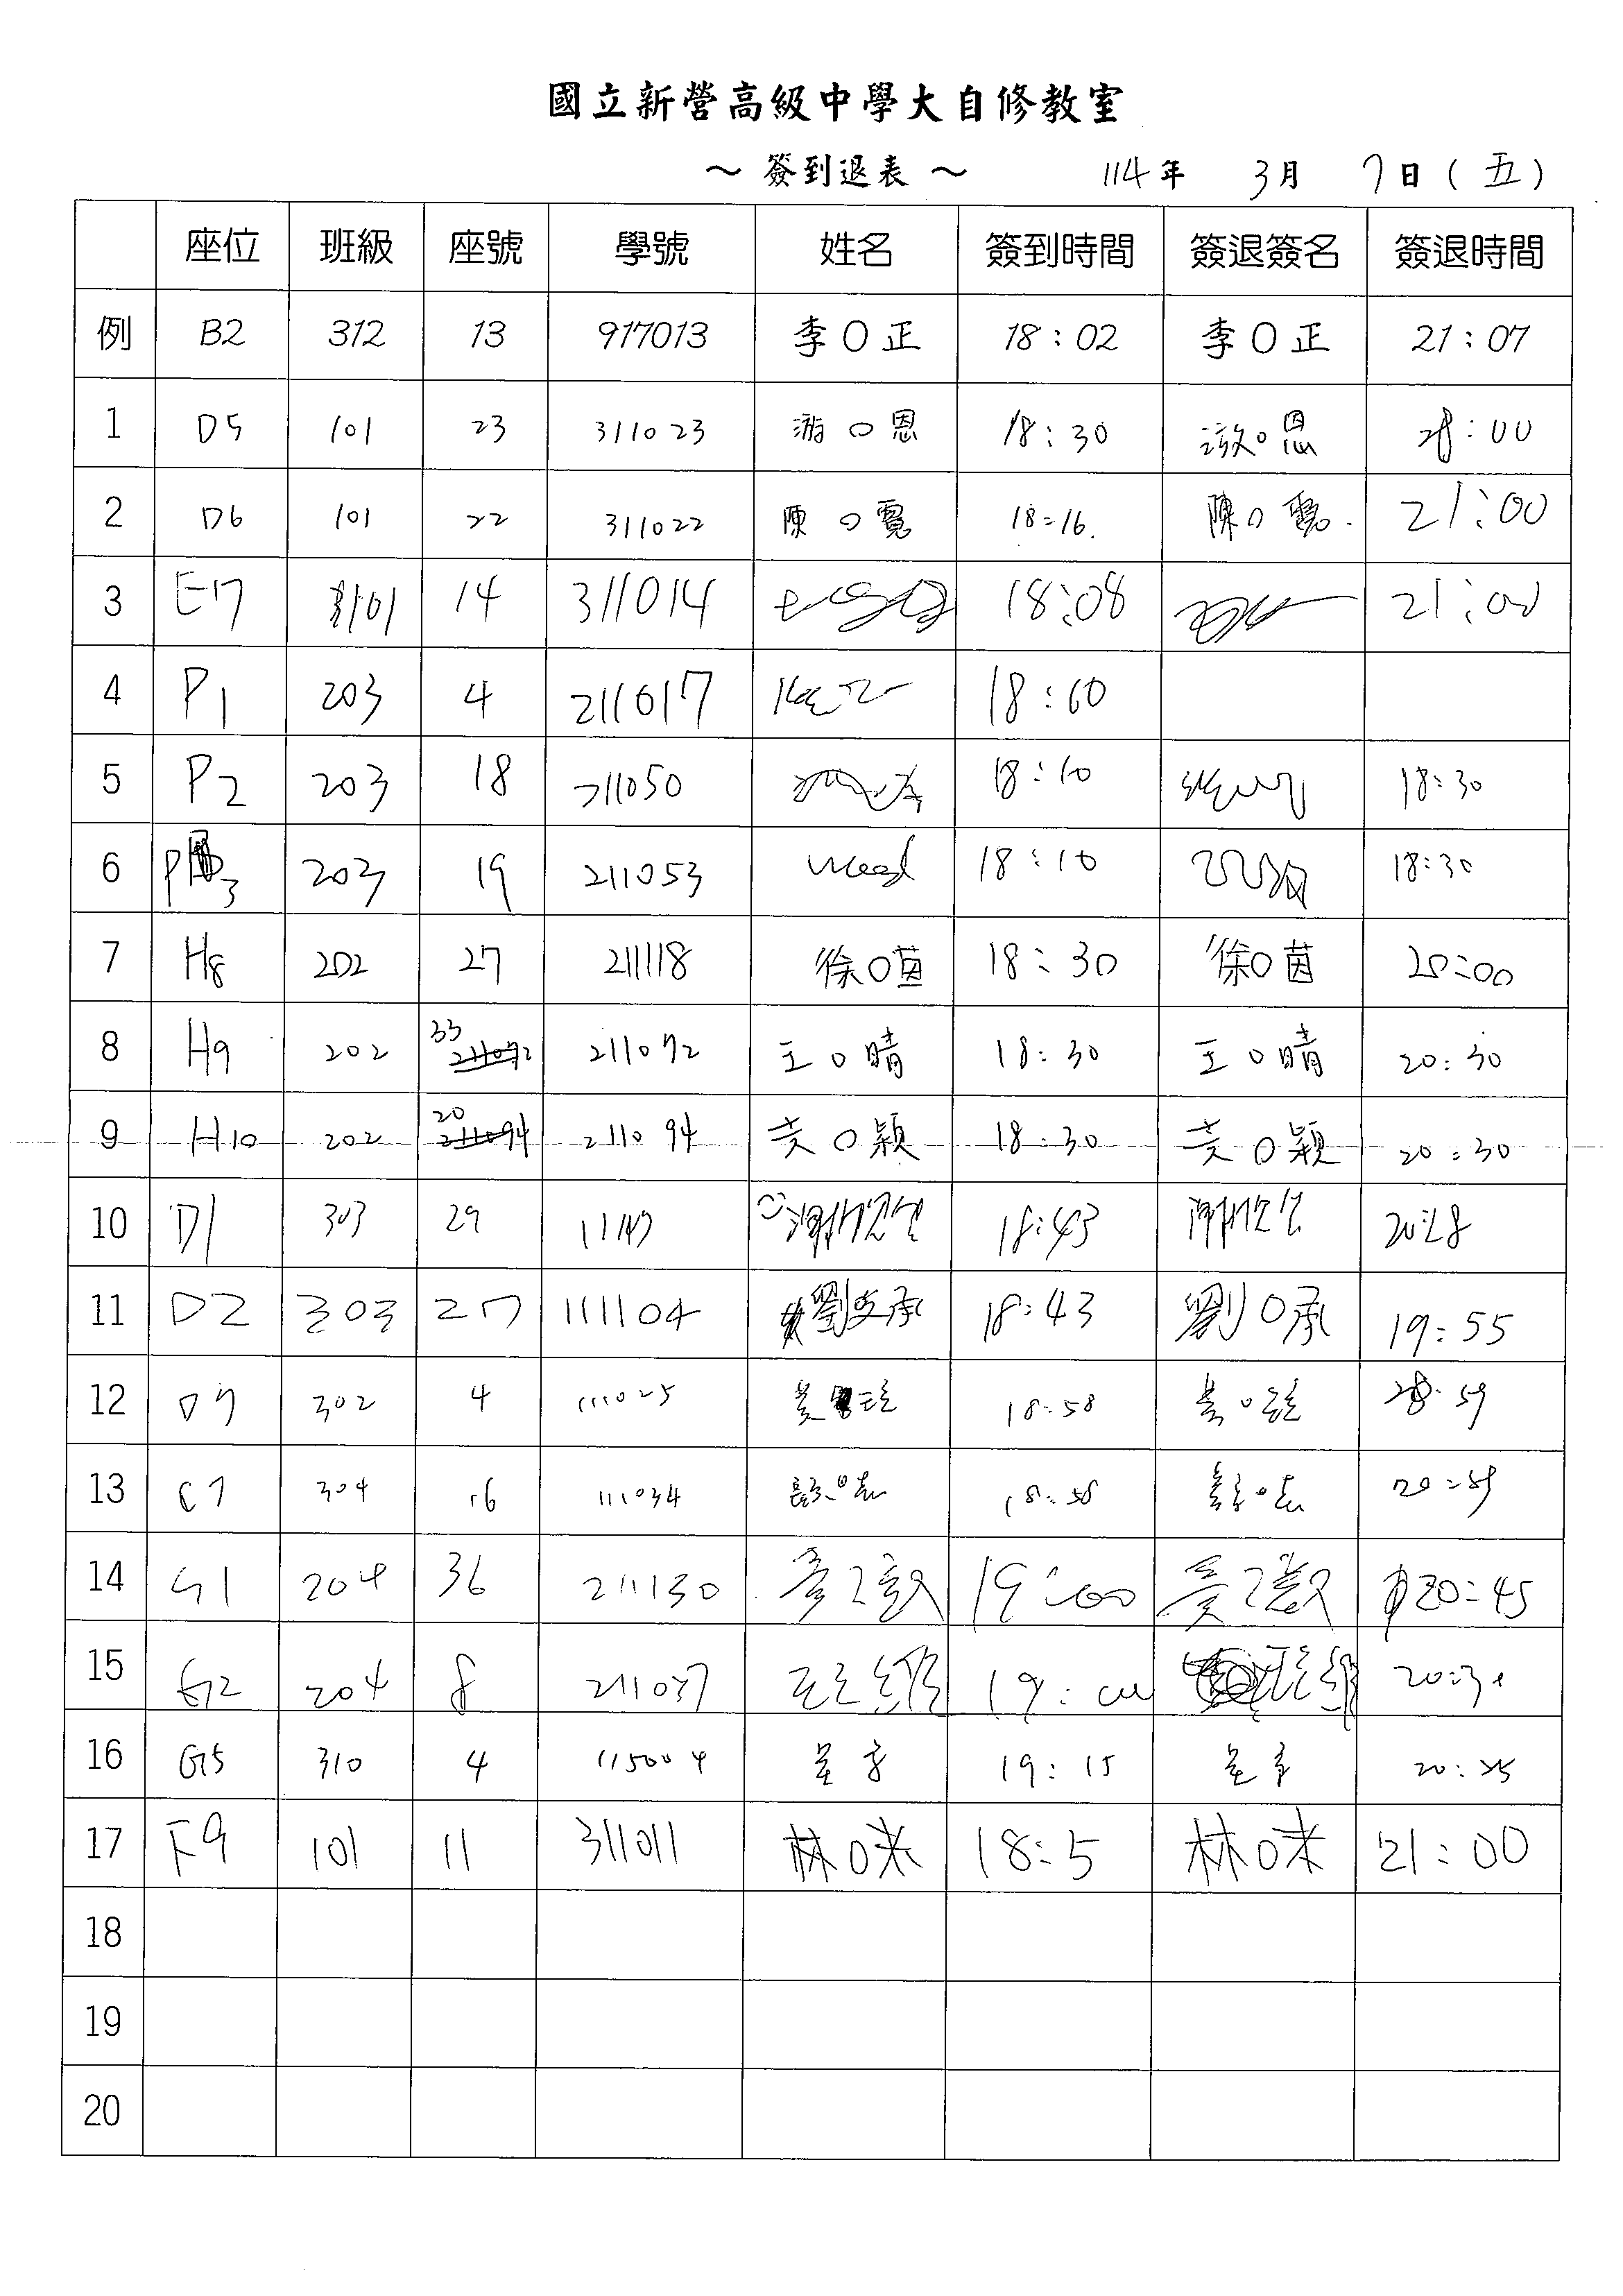 國立新營高級中學大自修教室
～ 簽到退表 ～ 114年 3月 7日(五)
座位 班級 座號 學號 姓名 簽到時間 簽退簽名 簽退時間
例 B2 312 13 917013 李O正 18:02 李O正 21:07
1 D5 101 23 311023 游O恩 18:30 游O恩 :00
2 D6 101 22 311022 陳O寬 18:16. 陳O寬. 21:00
3 E7 101 14 311014 18:08 21:00
4 P1 203 4 211017 18:00
5 P2 203 18 211050 18:10 18:30
6 P3 203 19 211053 18:10 18:30
7 H8 202 27 211118 徐O茵 18:30 徐O茵 20:00
8 H9 202 33 211072 王O晴 18:30 王O晴 20:30
9 H10 202 20 211094 黃O穎 18:30 黃O穎 20:30
10 D1 303 29 18:43 20:28
11 D2 303 27 111104 劉文承 18:43 劉O承 19:55
12 D7 302 4 111025 黃 18:58 黃O :59
13 C7 304 16 111034 18:58 20:59
14 G1 204 36 211130 19:00 20:45
15 G2 204 8 211037 19:00 20:30
16 G5 310 4 115004 19:15 20:25
17 F9 101 11 311011 林O咪 18:5 林O咪 21:00
18
19
20